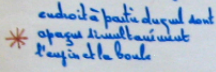 endroit à partir duquel sont
apparus simultanément
l'engin et la boule